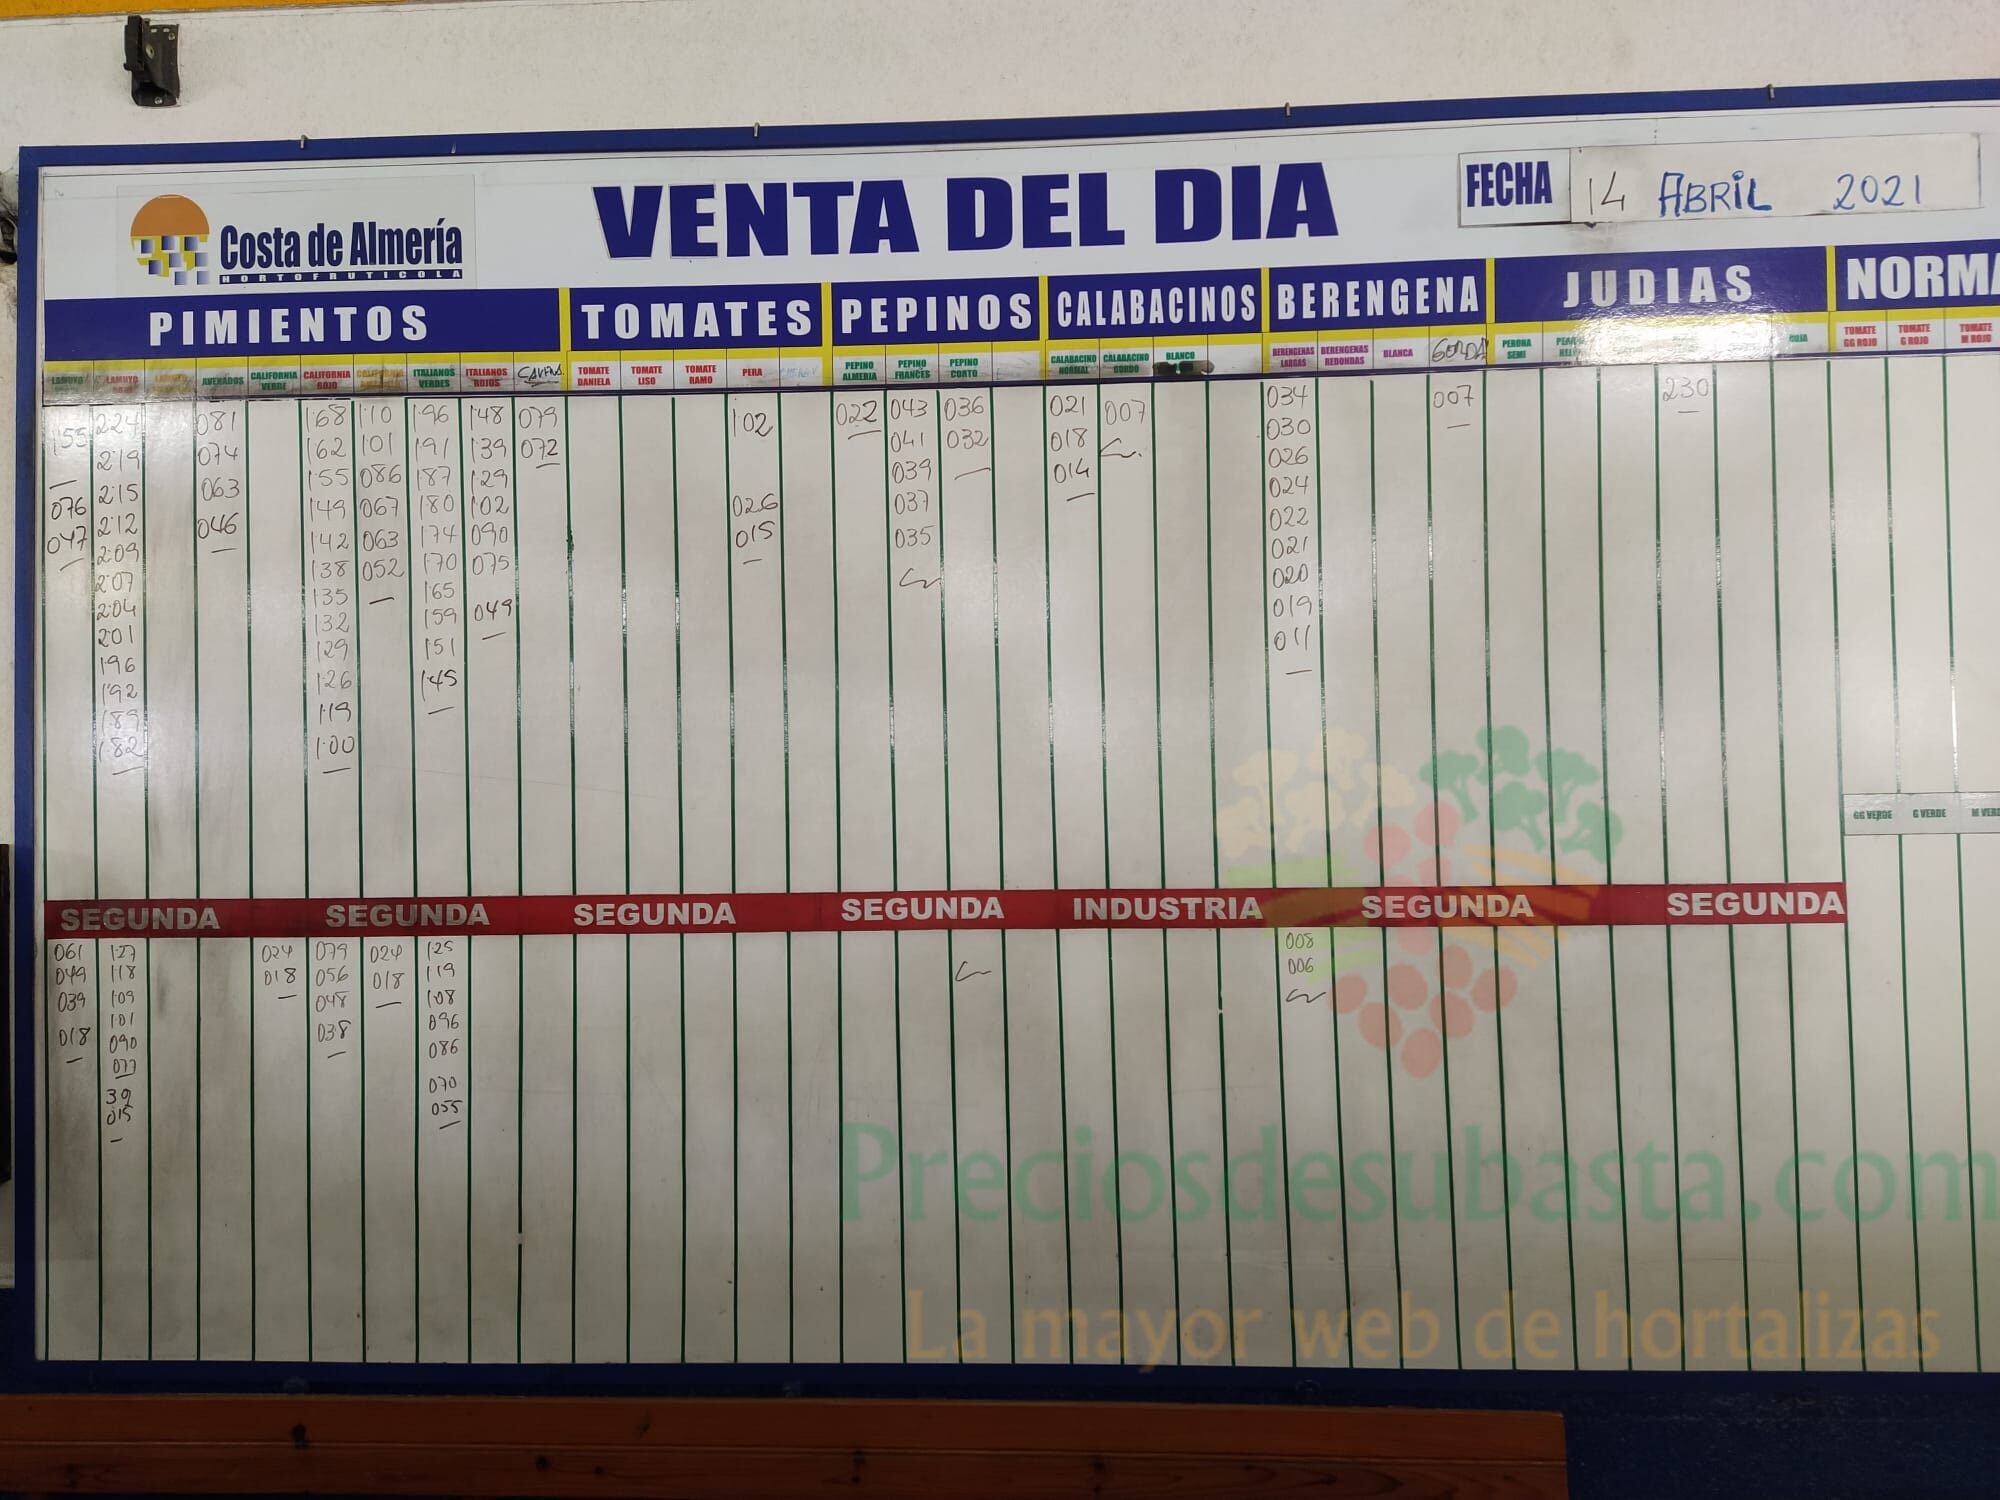 VENTA DEL DIA
FECHA 14 ABRIL 2021
Costa de Almería
HORTOFRUTICOLA
PIMIENTOS TOMATES PEPINOS CALABACINOS BERENGENA JUDIAS NORMA
LAMUYO ROJO
AVENADOS
CALIFORNIA VERDE
CALIFORNIA ROJO
CALIFORNIA
ITALIANOS VERDES
ITALIANOS ROJOS
TOMATE DANIELA
TOMATE LISO
TOMATE RAMO
PERA
PEPINO ALMERIA
PEPINO FRANCES
PEPINO CORTO
CALABACINO NORMAL
CALABACINO GORDO
BLANCO
BERENGENAS LARGAS
BERENGENAS REDONDAS
BLANCA
GORDA
PERONA SEMI
ROJA
TOMATE GG ROJO
TOMATE G ROJO
TOMATE M ROJO
1'55
076
047
2'24
2'19
2'15
2'12
2'09
2'07
2'04
2'01
1'96
1'92
1'89
1'82
081
074
063
046
1'68
1'62
1'55
1'49
1'42
1'38
1'35
1'32
1'29
1'26
1'19
1'00
1'10
1'01
086
067
063
052
1'96
1'91
1'87
1'80
1'74
1'70
1'65
1'59
1'51
1'45
1'48
1'39
1'29
1'02
090
075
049
079
072
1'02
026
015
022
043
041
039
037
035
036
032
021
018
014
007
034
030
026
024
022
021
020
019
011
007
230
GG VERDE G VERDE M VERD
SEGUNDA SEGUNDA SEGUNDA SEGUNDA INDUSTRIA SEGUNDA SEGUNDA
061
049
039
018
1'27
1'18
1'09
1'01
090
077
39
015
024
018
079
056
048
038
024
018
1'25
1'19
1'08
096
086
070
055
008
006
Preciosdesubasta.com
La mayor web de hortalizas